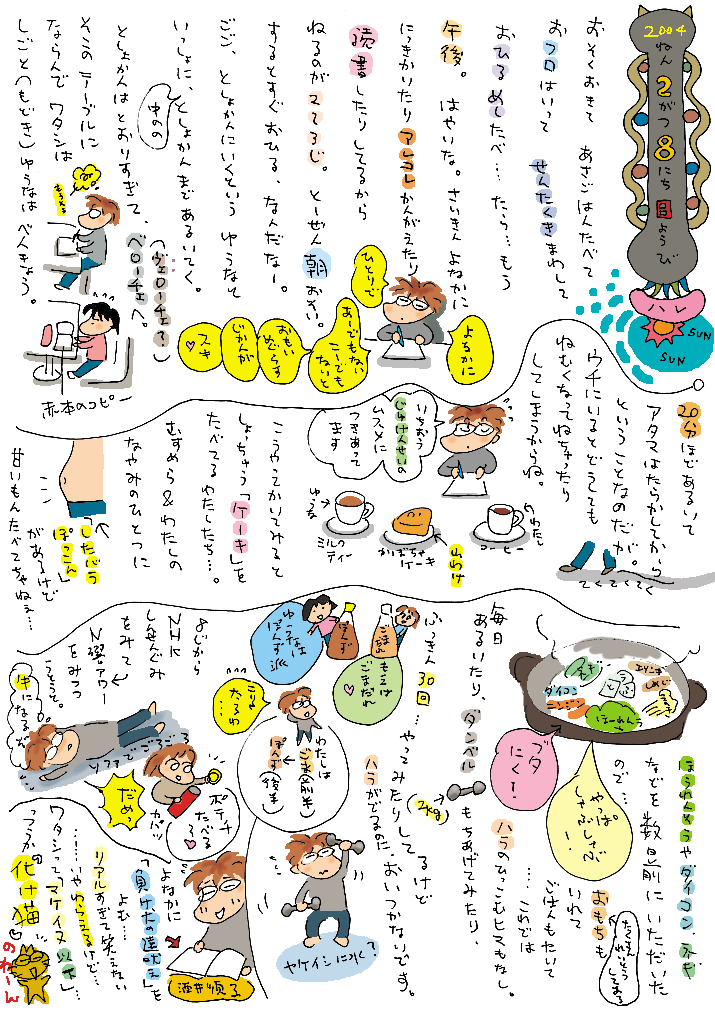 2004
ねん
2がつ
8にち
日ようび
ハレ
SUN
SUN
おそくおきて あさごはんたべて
おフロはいって せんたくきまわして
おひるめしたべ…たら…もう
午後。はやいな。さいきんよなかに
にっきかいたり アレコレかんがえたり
読書したりしてるから
ねるのが 2じ3じ。とーぜん朝おそい。
するとすぐおひる、なんだなー。
ごご、としょかんにいくという ゆうなと
いっしょに、としょかんまであるいてく。
としょかんはとおりすぎて、
中のの
(ヴェローチェ?)
ベローチェへ。
そこのテーブルに
ならんで ワタシは
しごと(もどき)ゆうなは べんきょう。
赤本のコピー
よるかに
ひとりで
あーでもない
こーでも
ないと
おもい
めぐらす
じかんが
スキ
20分ほどあるいて
アタマはたらかしてから
ということなのだが。
ウチにいるとどうしても
ねむくなってねちゃったり
してしまうからね。
てくてくてく
いちおう
じゅけんせいの
ムスメに
つきあって
ます
わたし
コーヒー
山わけ
かぼちゃ
ケーキ
ゆうな
ミルク
ティー
こうやってかいてみると
しょっちゅう「ケーキ」を
たべてるわたしたち…。
むすめら&わたしの
なやみのひとつに
「したバラ
ぽっこん」
があるけど
甘いもんたべてちゃねぇ…
ネギ
とうふ
エリンギ
しめじ
ダイコン
ニンジン
ほーれんそう
ブタ
にく!
やっぱ
しゃぶしゃぶ
…!
ほうれんそうやダイコン、ネギ
などを 数日前に いただいた
ので…
おもちも
いれて
ごはんもたいて
……これでは
ハラのひっこむヒマもなし。
毎日
あるいたり、
ダンベル
(2kg)
もちあげてみたり、
ふっきん30回…やってみたりしてるけど
ハラがでるのた、おいつかないです。
ごまだれ
ぽんず
もえは
ごまだれ
ゆうなは
ぽんず派
わたしは
ごま(前半)
ぽんず(後半)
こりゃ
たるわ
…
ヤケイシに水?
よじから
NHK
しぜんばんぐみ
をみて
N響アワー
をみつつ
ごろごろ。
牛になるぞ。
ソファでごろごろ
ポテチ
たべる
ろ
カパッ
だめっ
よなかに
「負け犬の遠吠え」を
よむ…
リアルすぎて笑えない
……!いやわらえるけど…
ワタシって「マケイヌ以下」…
っつうか 化け猫
のわーん
酒井順子